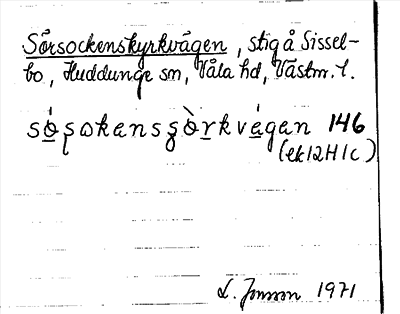 Sörsockenskyrkvägen, stig å Sissel-
bo, Huddunge sn, Våla hd, Västm. l.
sósokenssòrkvágen 146
(ek 12H1c)
L. Jonsson 1971